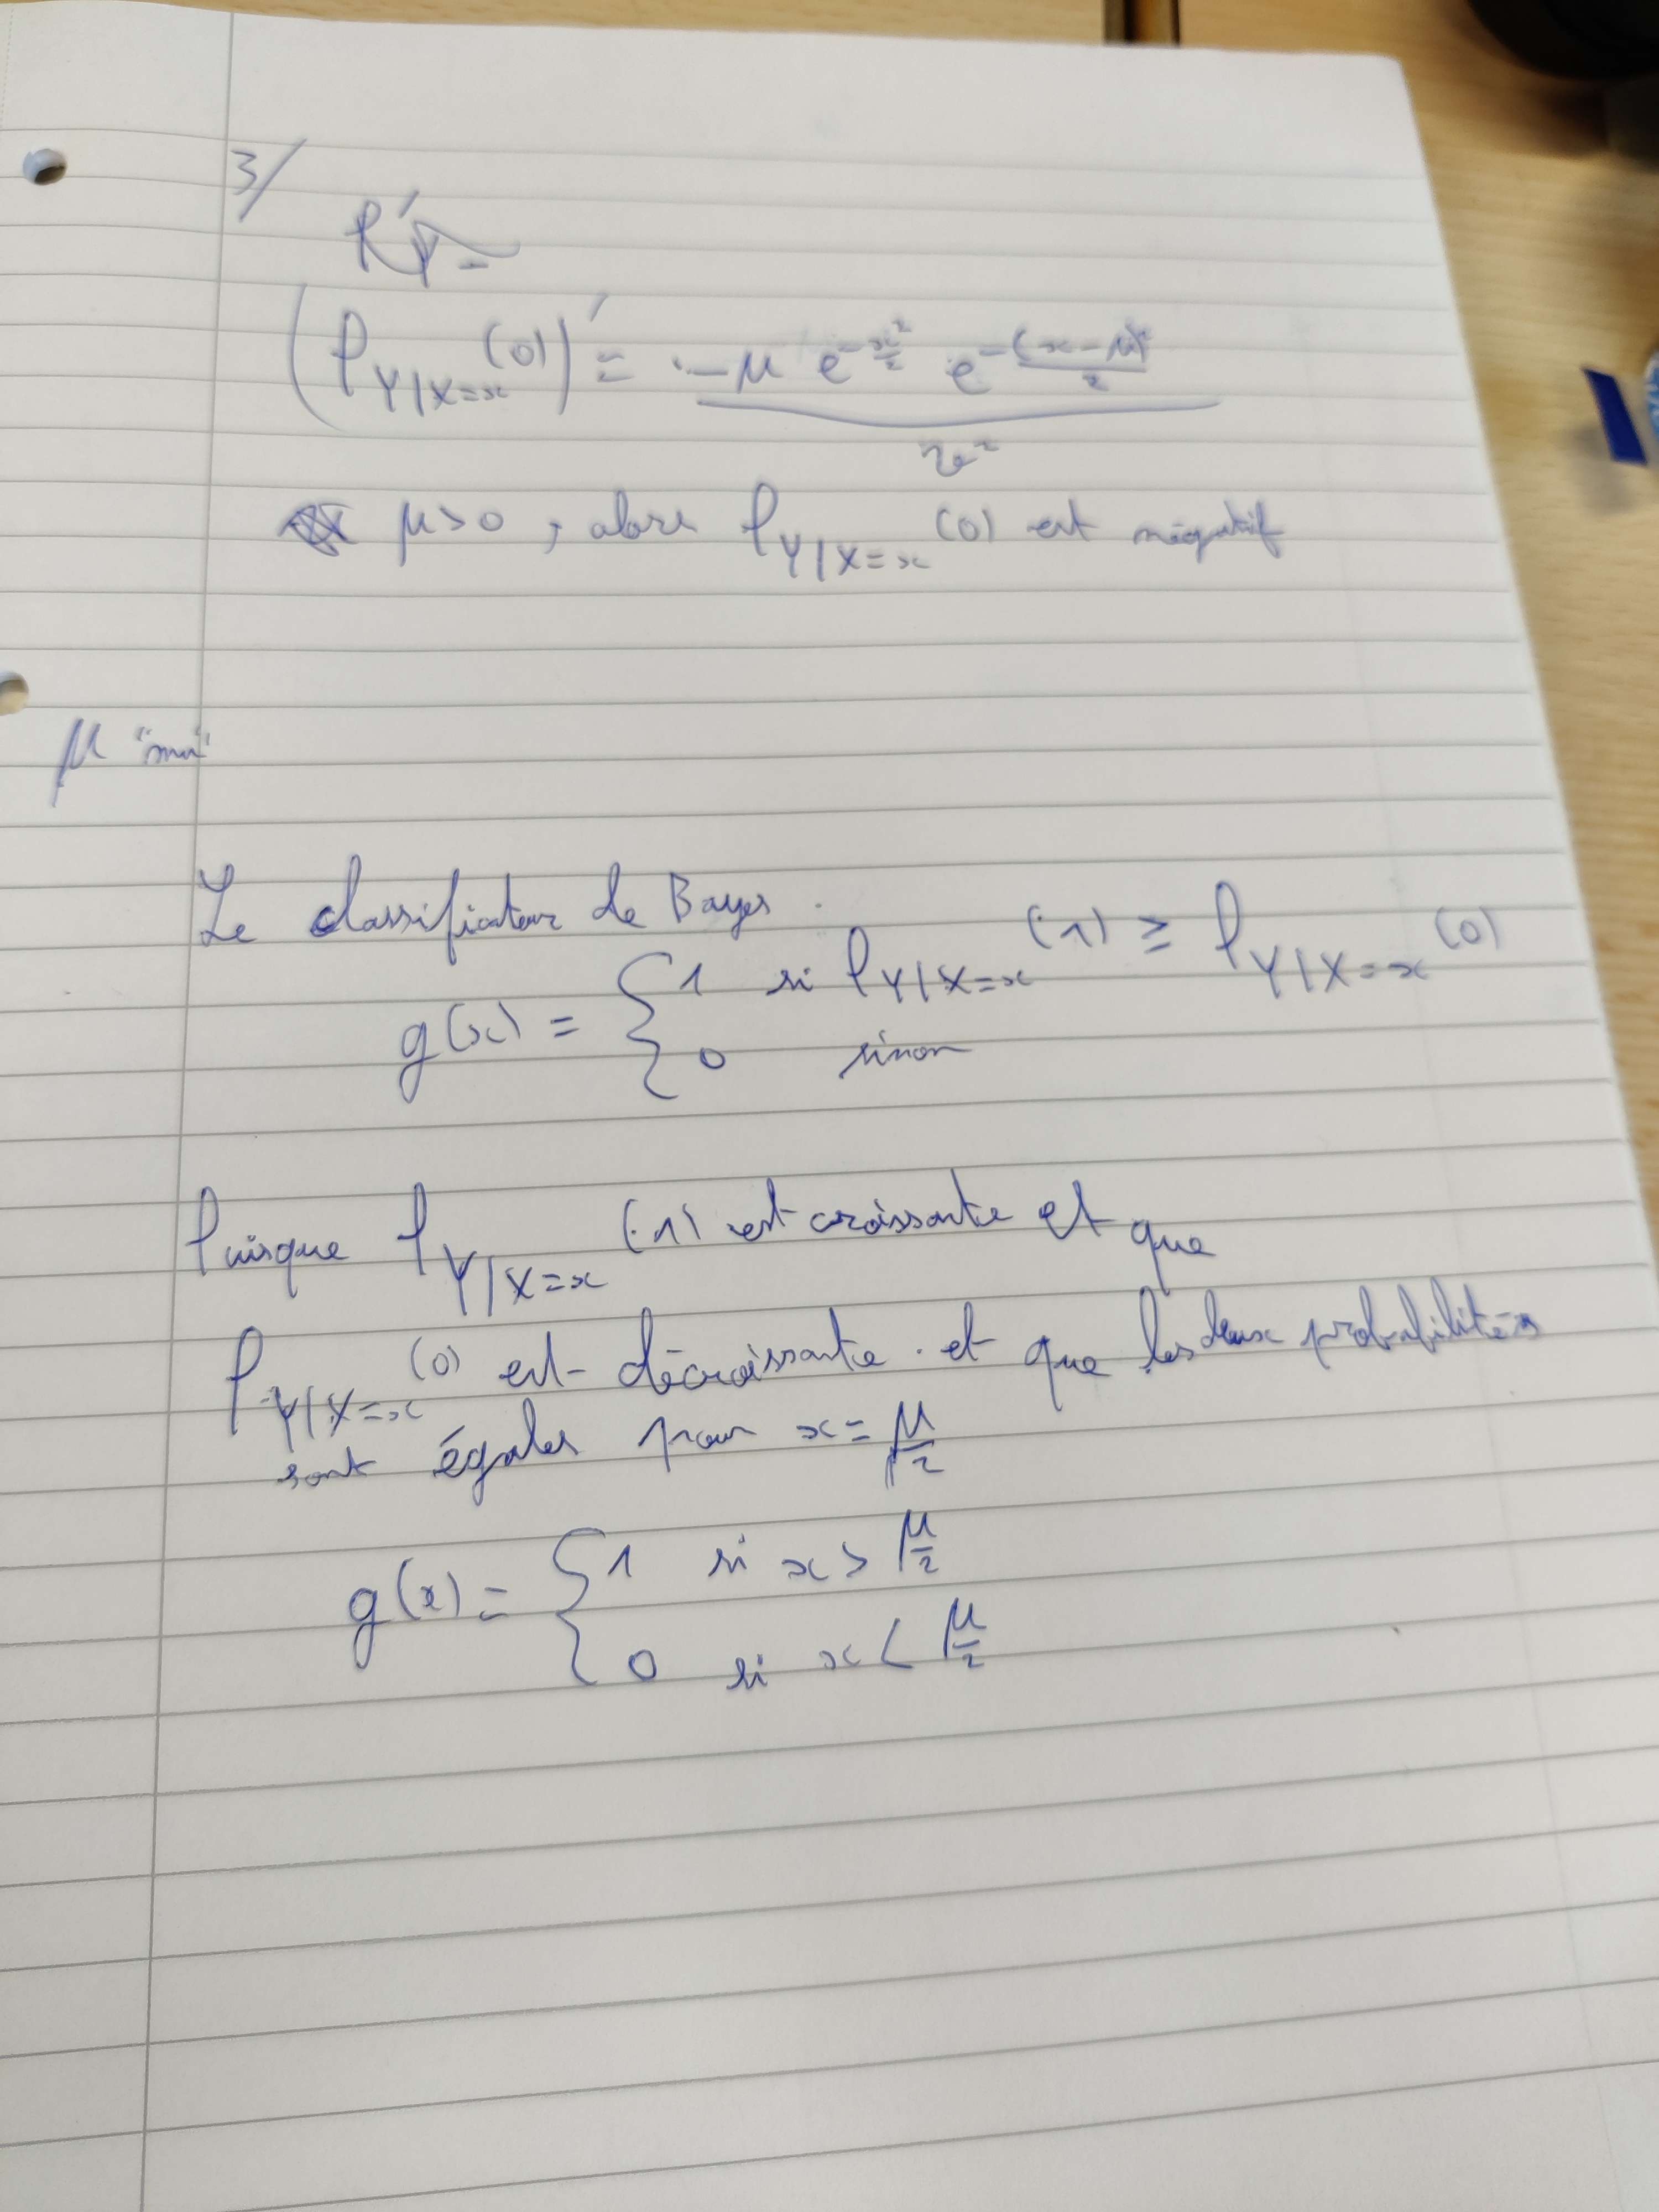 3/
(P_{Y|X=x}(0))' = -μ e^{-x²/2} e^{-(x-μ)²/2}
μ>0, alors P_{Y|X=x}(0) est négatif
μ "mu"
Le classificateur de Bayes.
g(x) = { 1 si P_{Y|X=x}(1) ≥ P_{Y|X=x}(0)
0 sinon
Puisque P_{Y|X=x}(1) est croissante et que
P_{Y|X=x}(0) est décroissante et que les deux probabilités
sont égales pour x = μ/2
g(x) = { 1 si x > μ/2
0 si x < μ/2